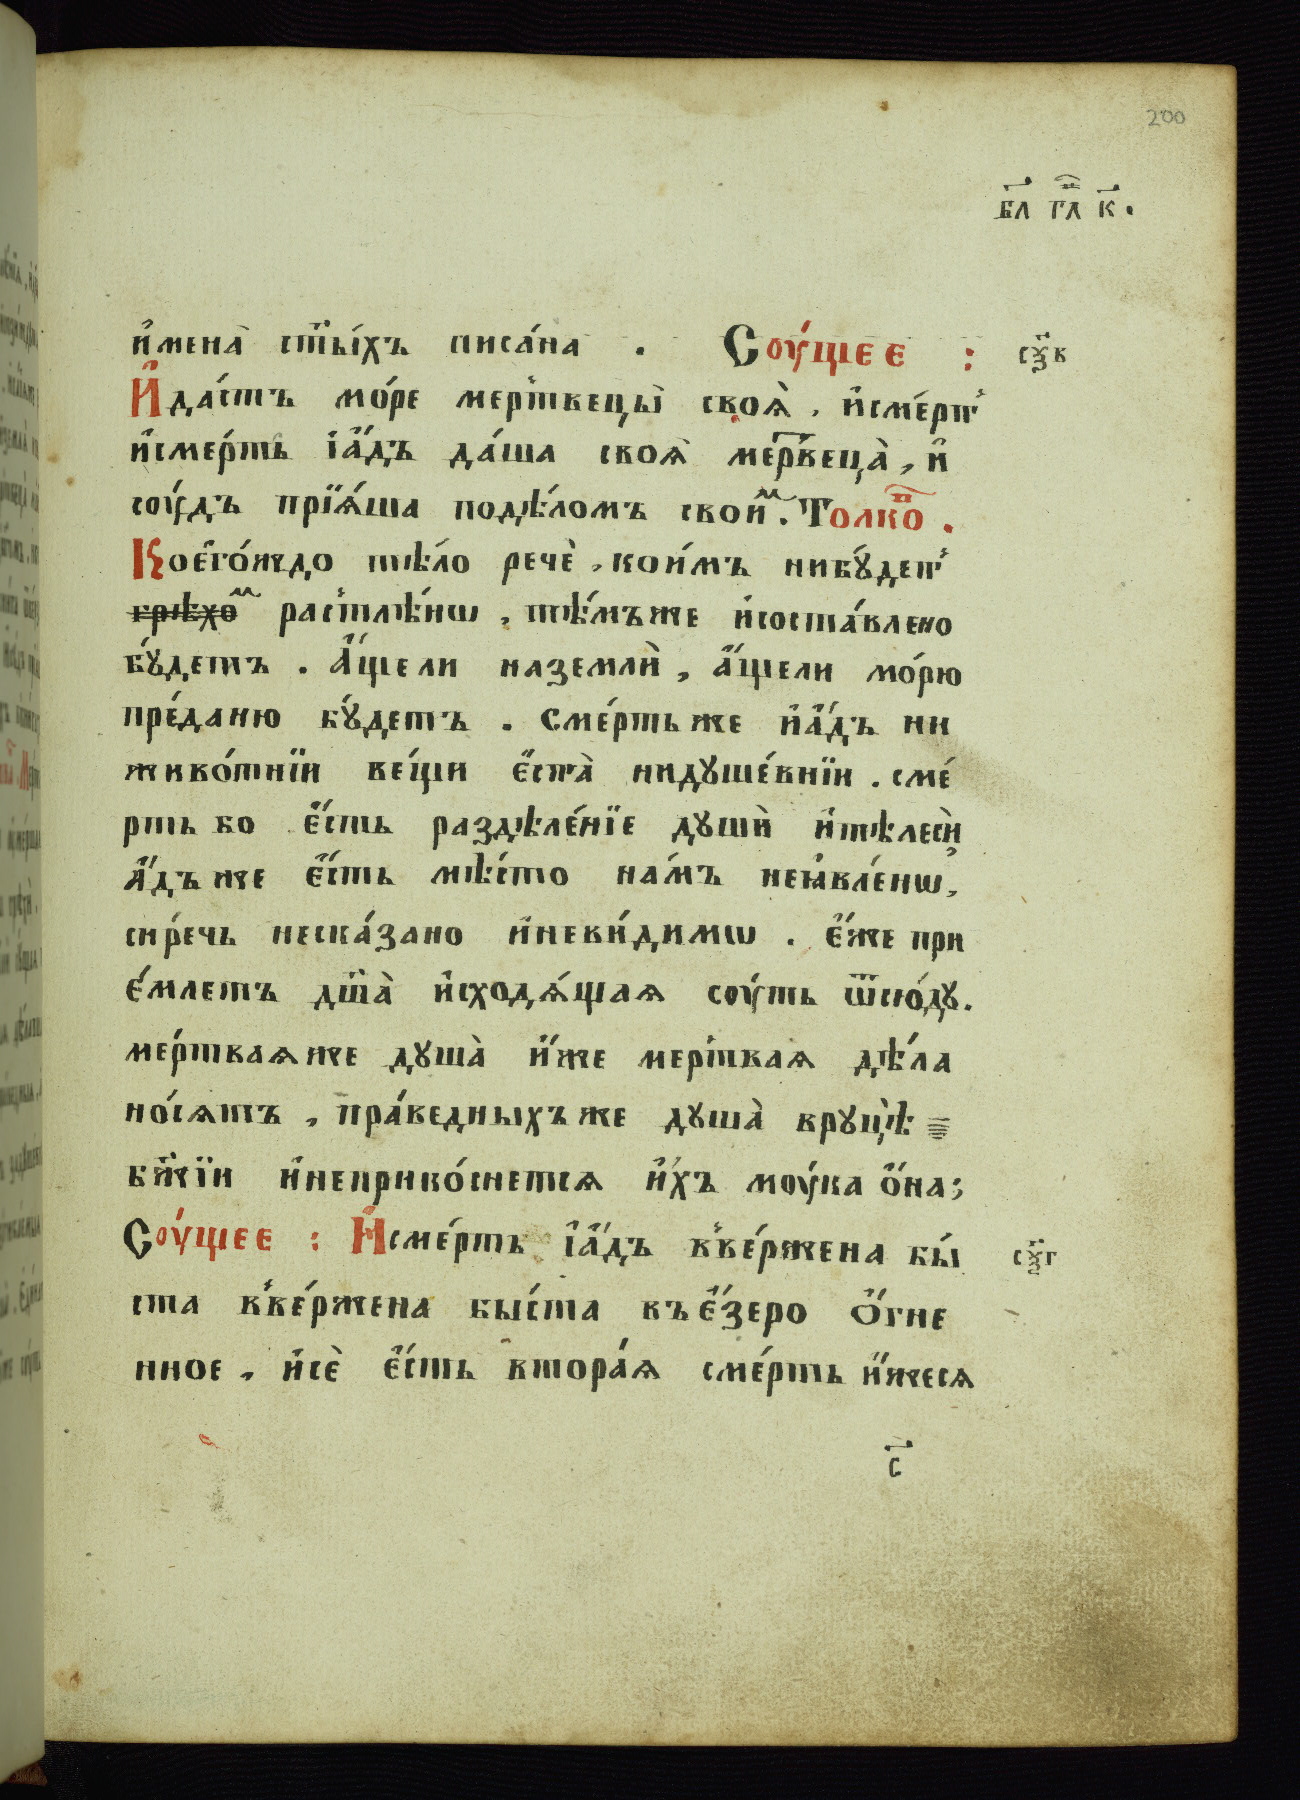 200
б҃л гл҃ к҃.
и҆мена̀ ст҃ы́хъ писа́на . Соу́щее : с҃ѯв
И҆ да́стъ мо́ре мертвецы̀ своѧ̀ , и҆сме́рт
и҆сме́рть і҆а́дъ да́ша своѧ̀ мервеца̀ , и҆
соу́дъ прїѧ́ша подѣ́ломъ свои́м . Толко .
Коегѡ́ждо тѣ́ло речѐ , кои́мъ нибꙋ́дет
грѣхо́м растлѣ́нѡ , тѣ́мъже и҆соста́влено
бꙋ́детъ . А҆́щели наземлѝ , а҆́щели мо́рю
пре́даню бꙋ́детъ . Сме́рть же и҆а́дъ ни
живо́тнїи ве́щи є҆ста̀ нидꙋше́внїи . сме́
рть бо є҆́сть раздѣле́нїе дꙋшѝ и҆тѣлесѝ
А҆́дъ же є҆́сть мѣ́сто на́мъ неꙗ҆вле́нѡ ,
сиречь неска́зано и҆неви́димѡ . є҆́же при
е́млетъ дш҃а̀ и҆сходѧ́щаѧ соу́ть ѿсю́дꙋ .
ме́ртваѧже дꙋша̀ и҆́же ме́ртваѧ дѣ́ла
но́сѧтъ , пра́ведныхъже дꙋша̀ врꙋцѣ̀
бж҃їи и҆неприко́снетсѧ и҆́хъ моу́ка о҆́на ;
Соу́щее : И҆сме́рть і҆а́дъ вве́ржена бы́
ста вве́ржена бы́ста въ є҆́зеро Ѻ҆́гне
нное , и҆сѐ є҆́сть втора́ѧ сме́рть и҆́жесѧ
с҃ѯг
с҃